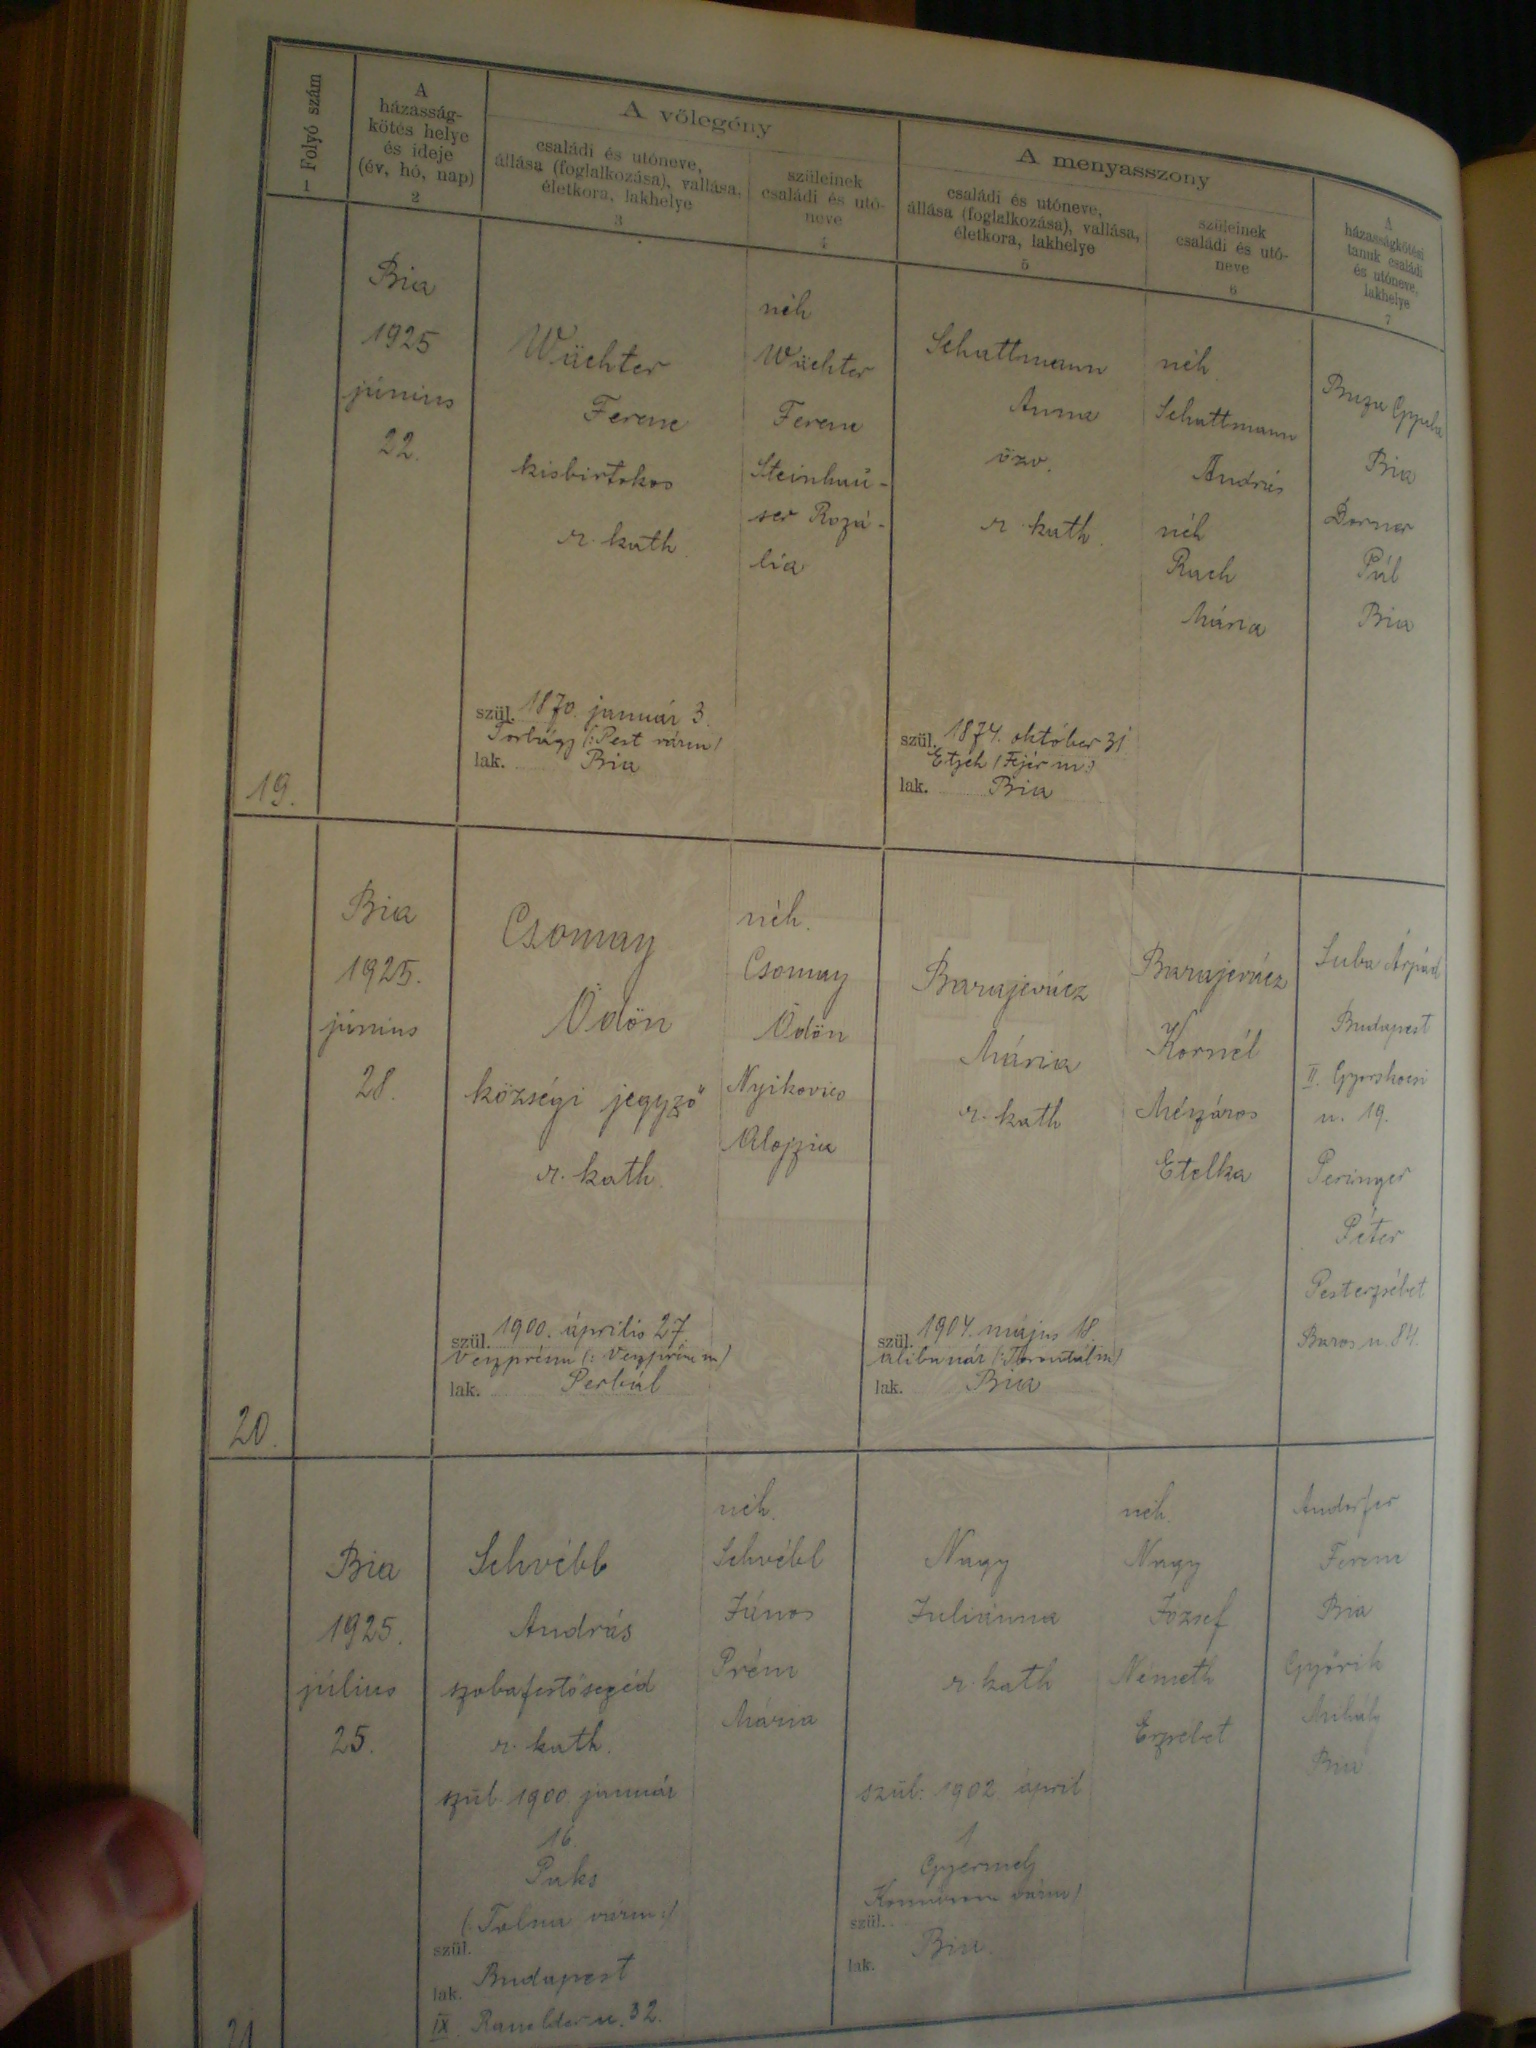 Folyó szám
1
A
házasság-
kötés helye
és ideje
(év, hó, nap)
2
A vőlegény
családi és utóneve,
állása (foglalkozása), vallása,
életkora, lakhelye
3
szüleinek
családi és utó-
neve
4
A menyasszony
családi és utóneve,
állása (foglalkozása), vallása,
életkora, lakhelye
5
szüleinek
családi és utó-
neve
6
A
házasságkötési
tanuk családi
és utóneve,
lakhelye
7
19.
Bia
1925
június
22.
Wächter
Ferenc
kisbirtokos
r. kath.
szül. 1870. január 3.
Torbágy (: Pest várm)
lak. Bia
néh
Wächter
Ferenc
Steinhau-
ser Rozá-
lia
Schattmann
Anna
özv.
r. kath.
szül. 1874. október 31
Etyek (Fejér m:)
lak. Bia
néh.
Schattmann
András
néh
Rach
Mária
Buza
Bia
Dorner
Pál
Bia
20.
Bia
1925.
június
28.
Csomay
Ödön
községi jegyző
r. kath.
szül. 1900. április 27.
Veszprém (: Veszprém m)
lak. Perbál
néh.
Csomay
Ödön
Nyikovics
Alojzia
Barajevácz
Mária
r. kath
szül. 1904. május 18.
Alibunár (: Torontál m)
lak. Bia
Barajevácz
Kornél
Mészáros
Etelka
Suba Árpád
Budapest
II. Gyorskocsi
u. 19.
Peringer
Péter
Pesterzsébet
Baros u. 84.
21
Bia
1925.
július
25.
Schvébb
András
szobafestősegéd
r. kath.
szül. 1900. január
16.
Paks
(: Tolna várm :)
szül.
lak. Budapest
IX. u. 32.
néh.
Schvébl
János
Prém
Mária
Nagy
Juliánna
r. kath
szül: 1902 april
1
Gyermely
Komárom várm)
szül.
lak. Bia.
néh.
Nagy
József
Németh
Erzsébet
Andorfer
Ferenc
Bia
Györik
Mihály
Bia